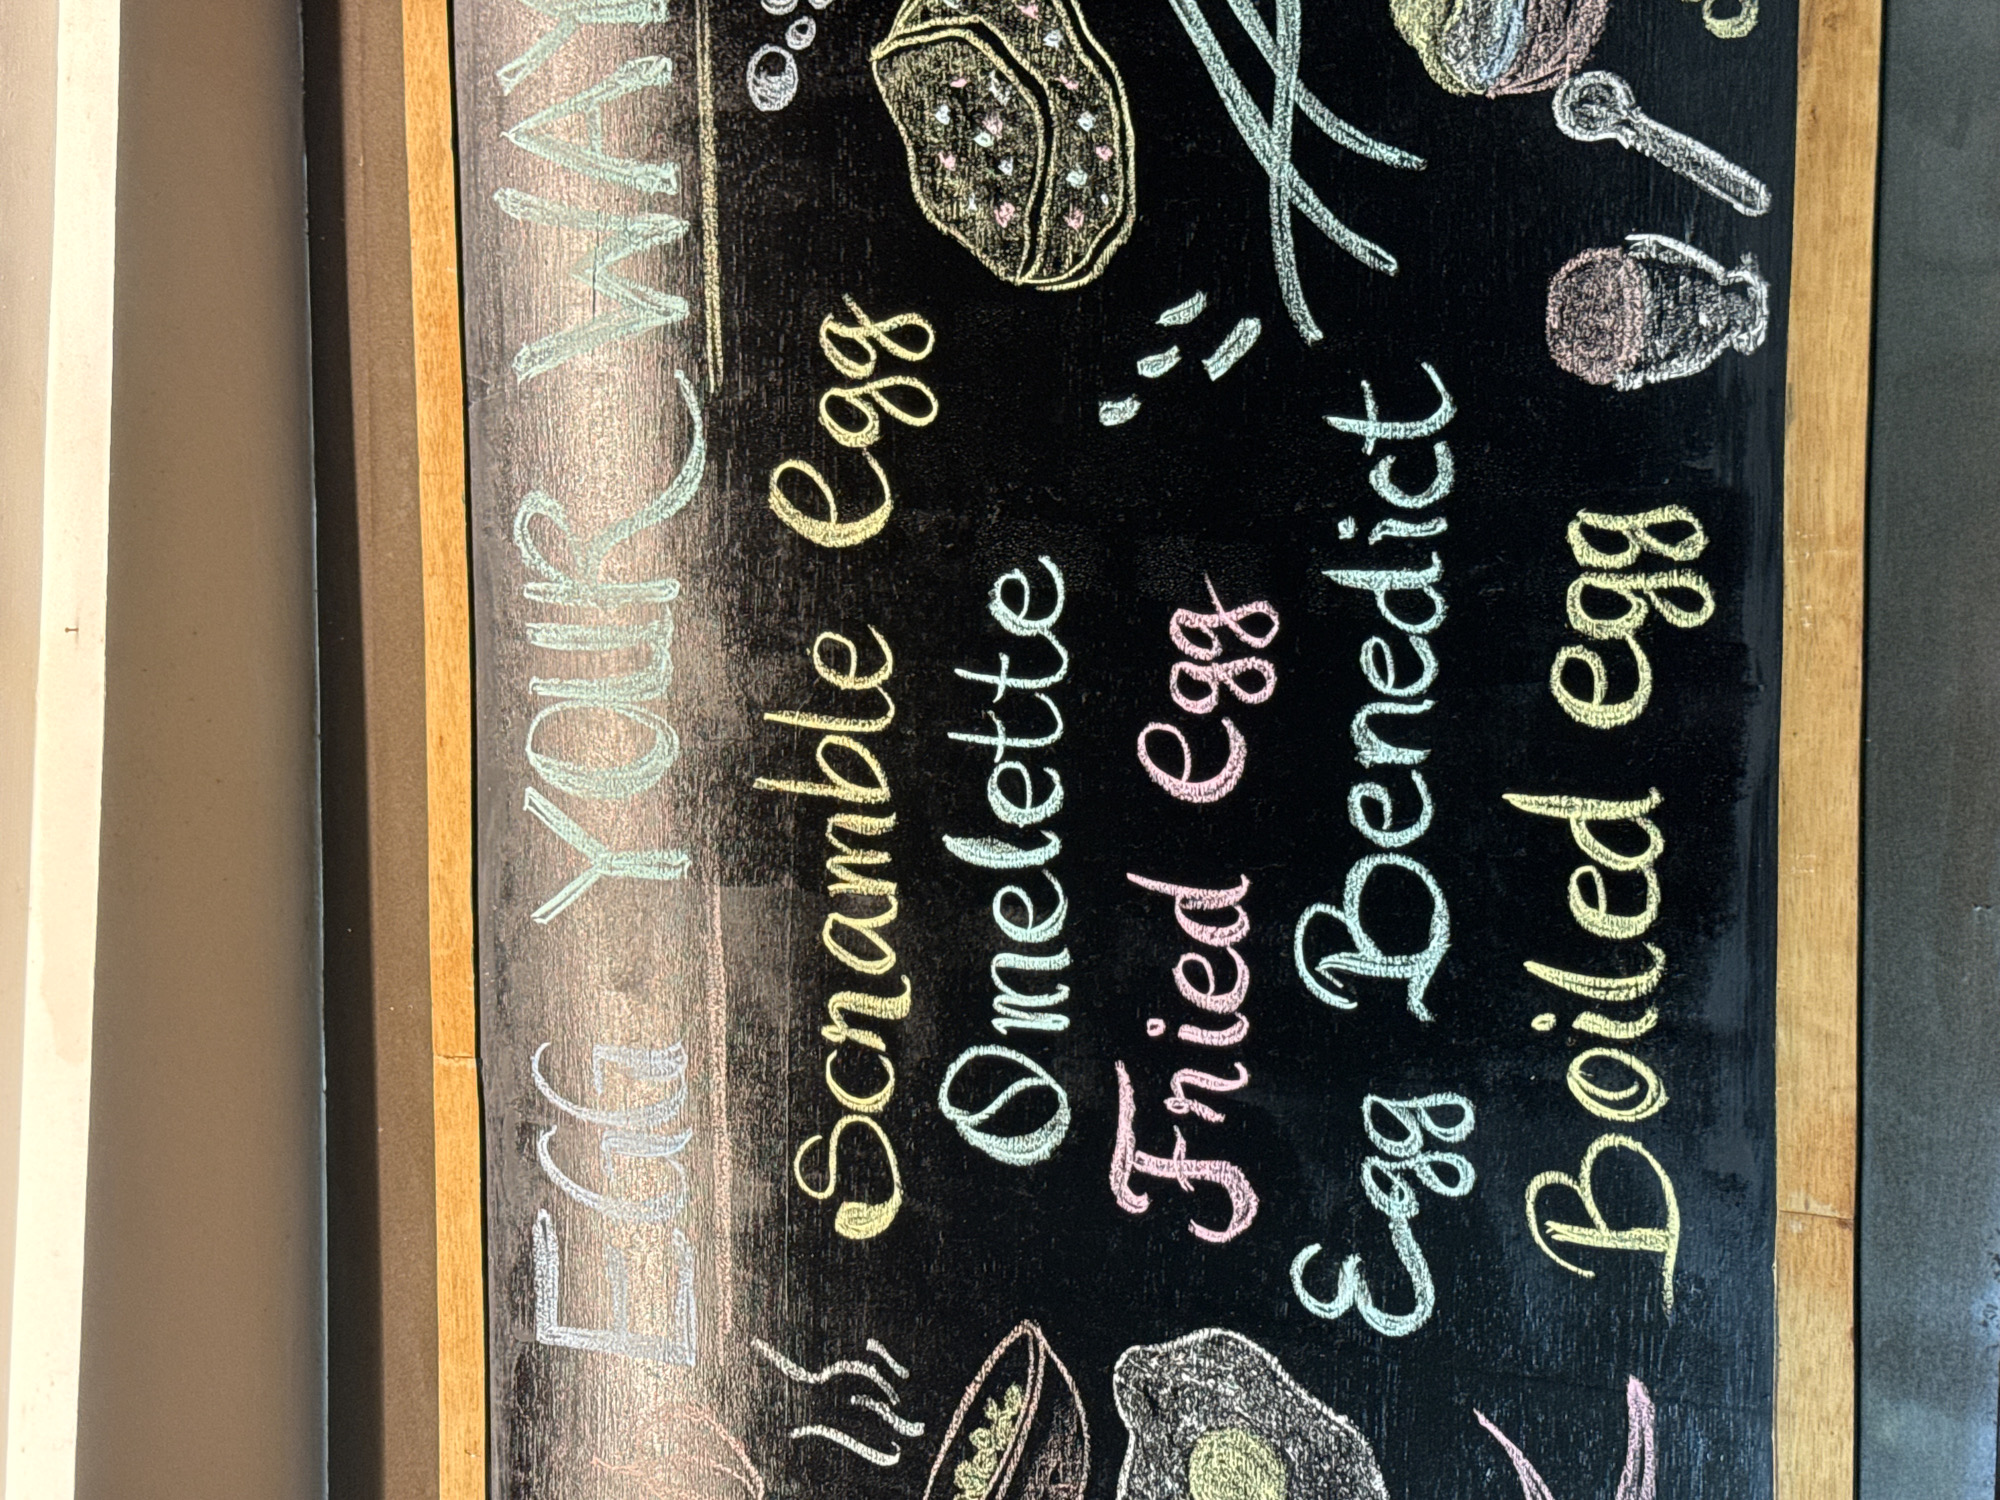 EGG YOUR WAY
Scramble egg
Omelette
Fried egg
Egg Benedict
Boiled egg